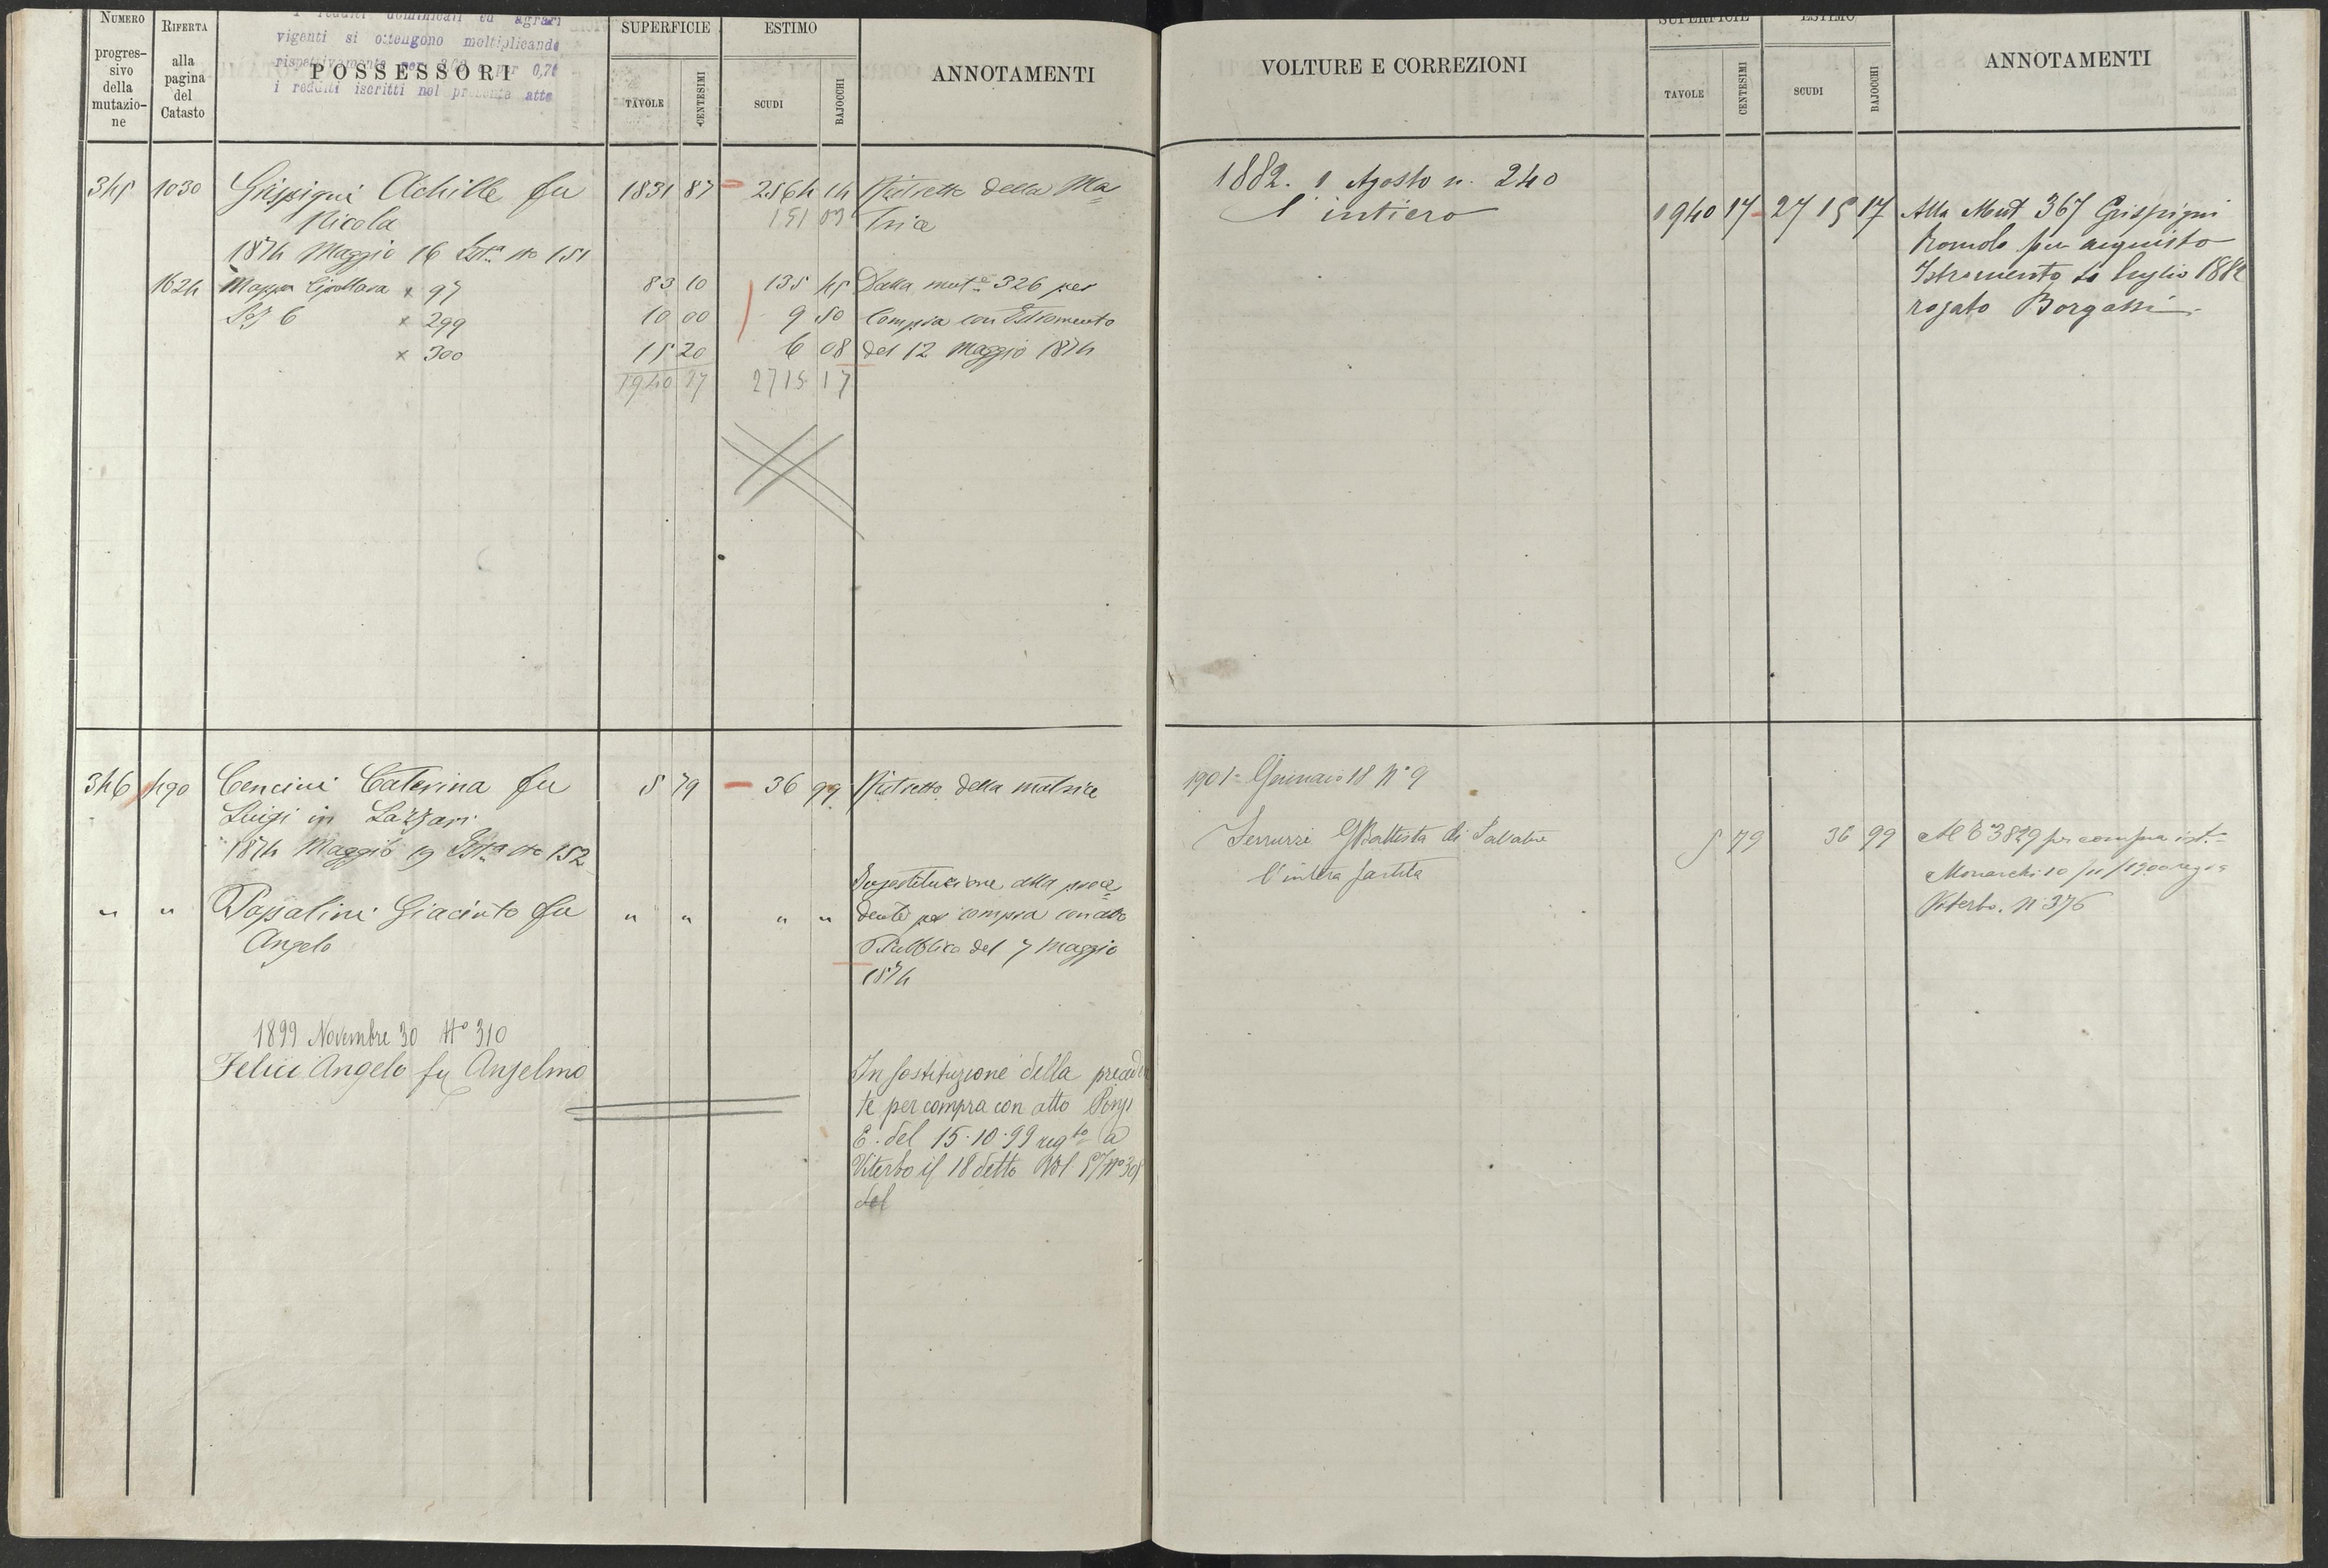 NUMERO
progres-
sivo
della
mutazio-
ne
RIFERTA
alla
pagina
del
Catasto
I redditi dominicali ed agrari
vigenti si ottengono moltiplicando
rispettivamente per
i redditi iscritti nel presente atto
POSSESSORI
SUPERFICIE
TAVOLE
CENTESIMI
ESTIMO
SCUDI
BAJOCCHI
ANNOTAMENTI
345 1030 Grispigni Achille fu 1831 87 2564 14 Ristretto della Ma=
Nicola 151 03 trice
1874 Maggio 16 Ista No 151
1624 Mappa Cipollara x 97 83 10 135 45 Dalla mut.e 326 per
Sez 6 x 299 10 00 9 50 Compra con Istromento
x 300 15 20 6 08 del 12 Maggio 1874
1940 17 2715 17
346 490 Cencini Caterina fu 5 79 36 99 Ristretto della matrice
Luigi in Lazzari
1874 Maggio 19 Ista No 152
In sostituzione alla prece=
" " Passalini Giacinto fu " " " " dente per compra con atto
Angelo Pubblico del 7 Maggio
1874
1899 Novembre 30 No 310
Felici Angelo fu Anselmo
In sostituzione della preceden
te per compra con atto
E. del 15.10.99 reg.to a
Viterbo il 18 detto Vol 57 No 305
del
VOLTURE E CORREZIONI
SUPERFICIE
TAVOLE
CENTESIMI
ESTIMO
SCUDI
BAJOCCHI
ANNOTAMENTI
1882. 1 Agosto n. 240
l'intiero 1940 17 2715 17 Alla Mut. 367 Grispigni
Romolo per acquisto
Istromento 10 luglio 1882
rogato Borgassi
1901 = Gennaio 18 N° 9
GBattista di Salvatore 5 79 36 99 Al C 3829 per compra ist.
l'intera partita Monarchi 10/11/1900 reg a
Viterbo. N 376